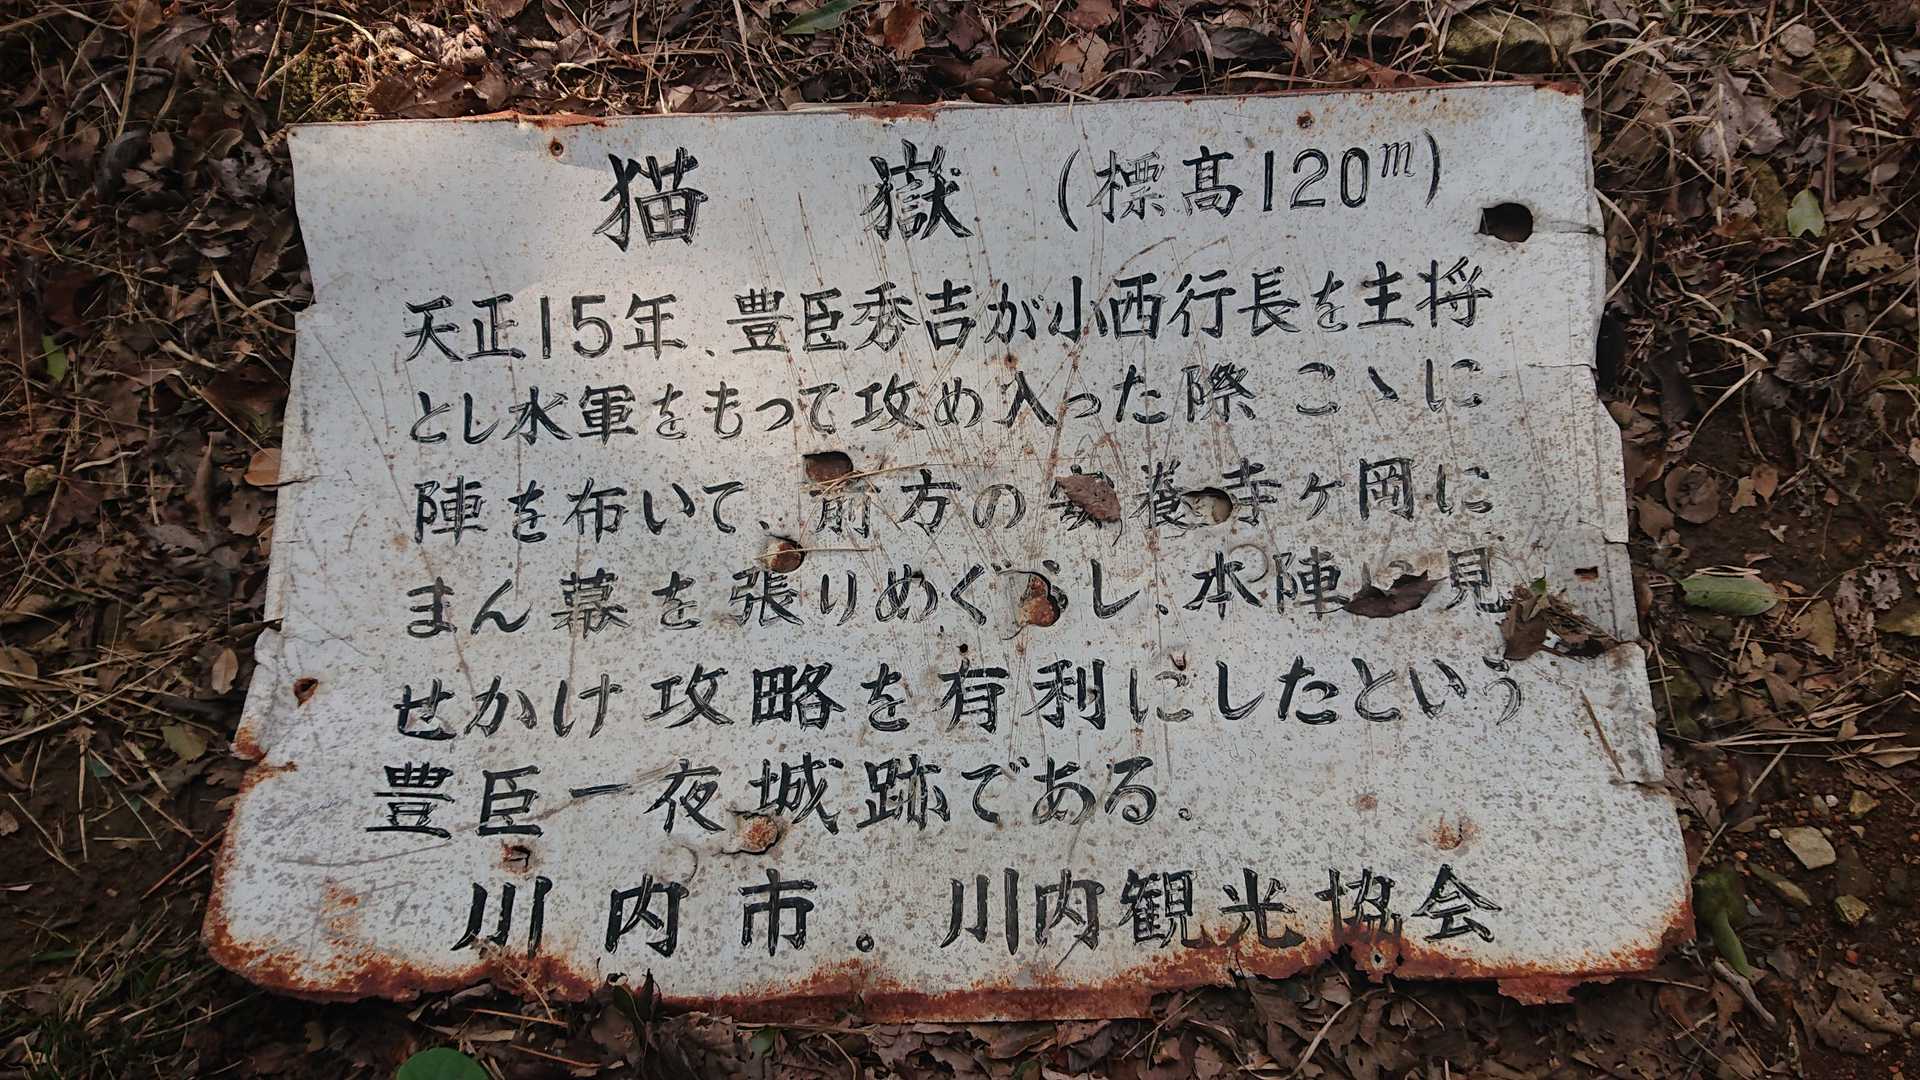 猫嶽（標高120m）
天正15年、豊臣秀吉が小西行長を主将
とし水軍をもって攻め入った際こゝに
陣を布いて、前方の安養寺ヶ岡に
まん幕を張りめぐらし、本陣に見
せかけ攻略を有利にしたという
豊臣一夜城跡である。
川内市。川内観光協会